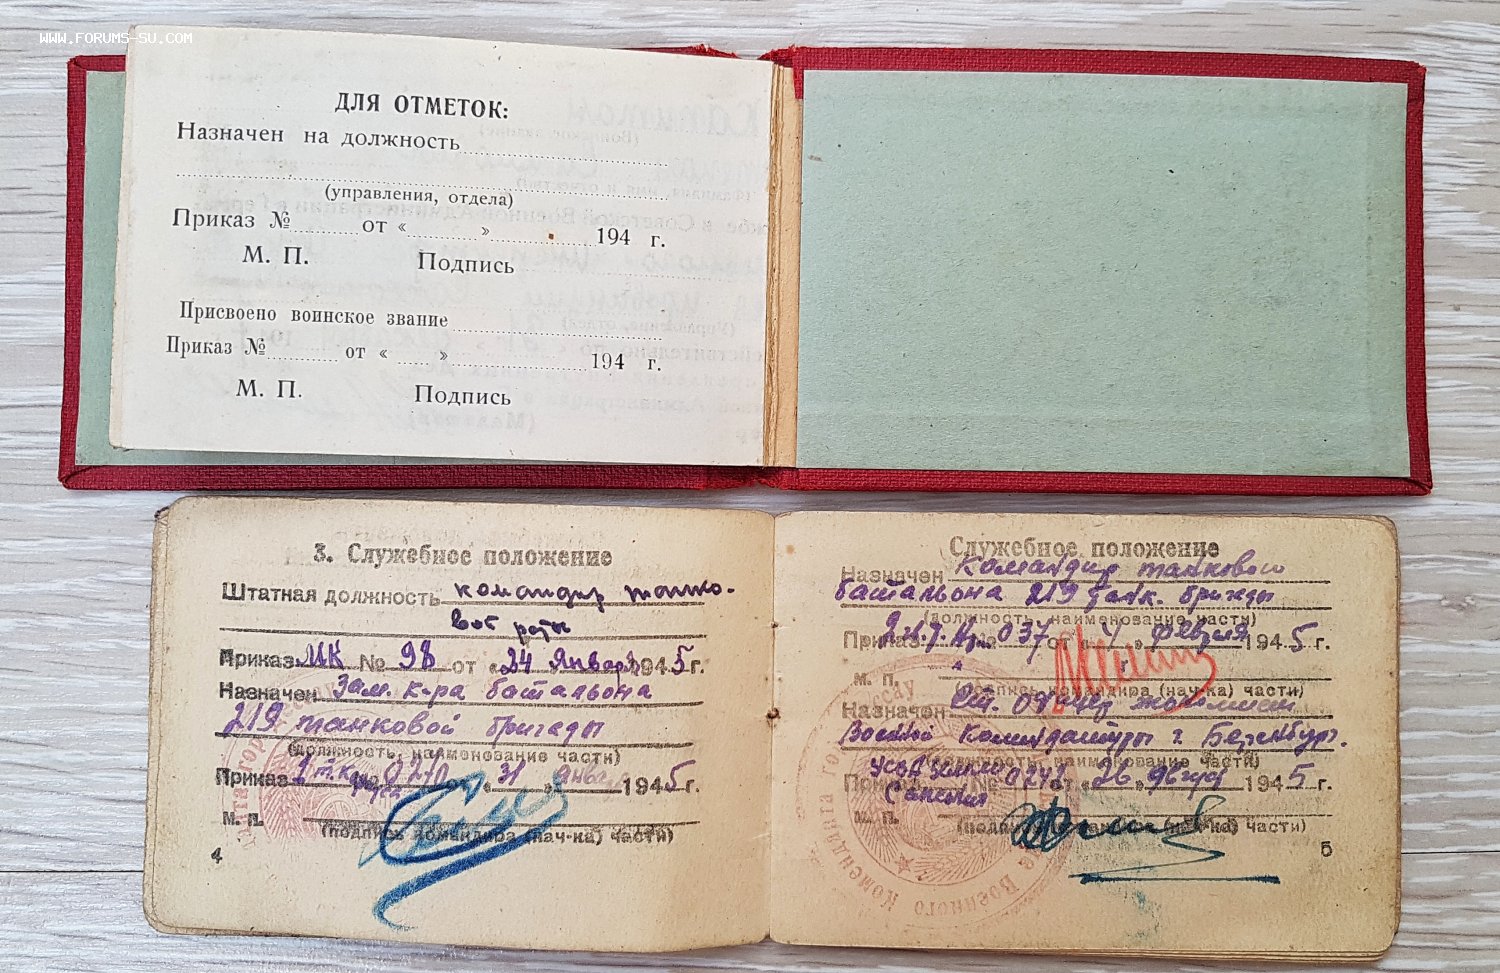 WWW.FORUMS-SU.COM
ДЛЯ ОТМЕТОК:
Назначен на должность
(управления, отдела)
Приказ № от « » 194 г.
М. П. Подпись
Присвоено воинское звание
Приказ № от « » 194 г.
М. П. Подпись
3. Служебное положение
Штатная должность командир танко-
вой роты
Приказ МК № 98 от „24 января 1945 г.
Назначен Зам. к-ра батальона
219 танковой бригады
(должность, наименование части)
Приказ 1 т.к. № 0210 31 января 1945 г.
М. П.
(подпись командира (нач-ка) части)
4
Служебное положение
Назначен Командир танкового
батальона 219 танк. бригады
(должность, наименование части)
Приказ № 037 от 4 февраля 1945 г.
м. п.
(подпись командира (нач-ка) части)
Назначен Ст. оф
Военной Комендатуры г. Бернбург.
(должность, наименование части)
Приказ № 0248 от 26 августа 1945 г.
Саксония
М. П.
(подпись командира (нач-ка) части)
5
Военного Коменданта